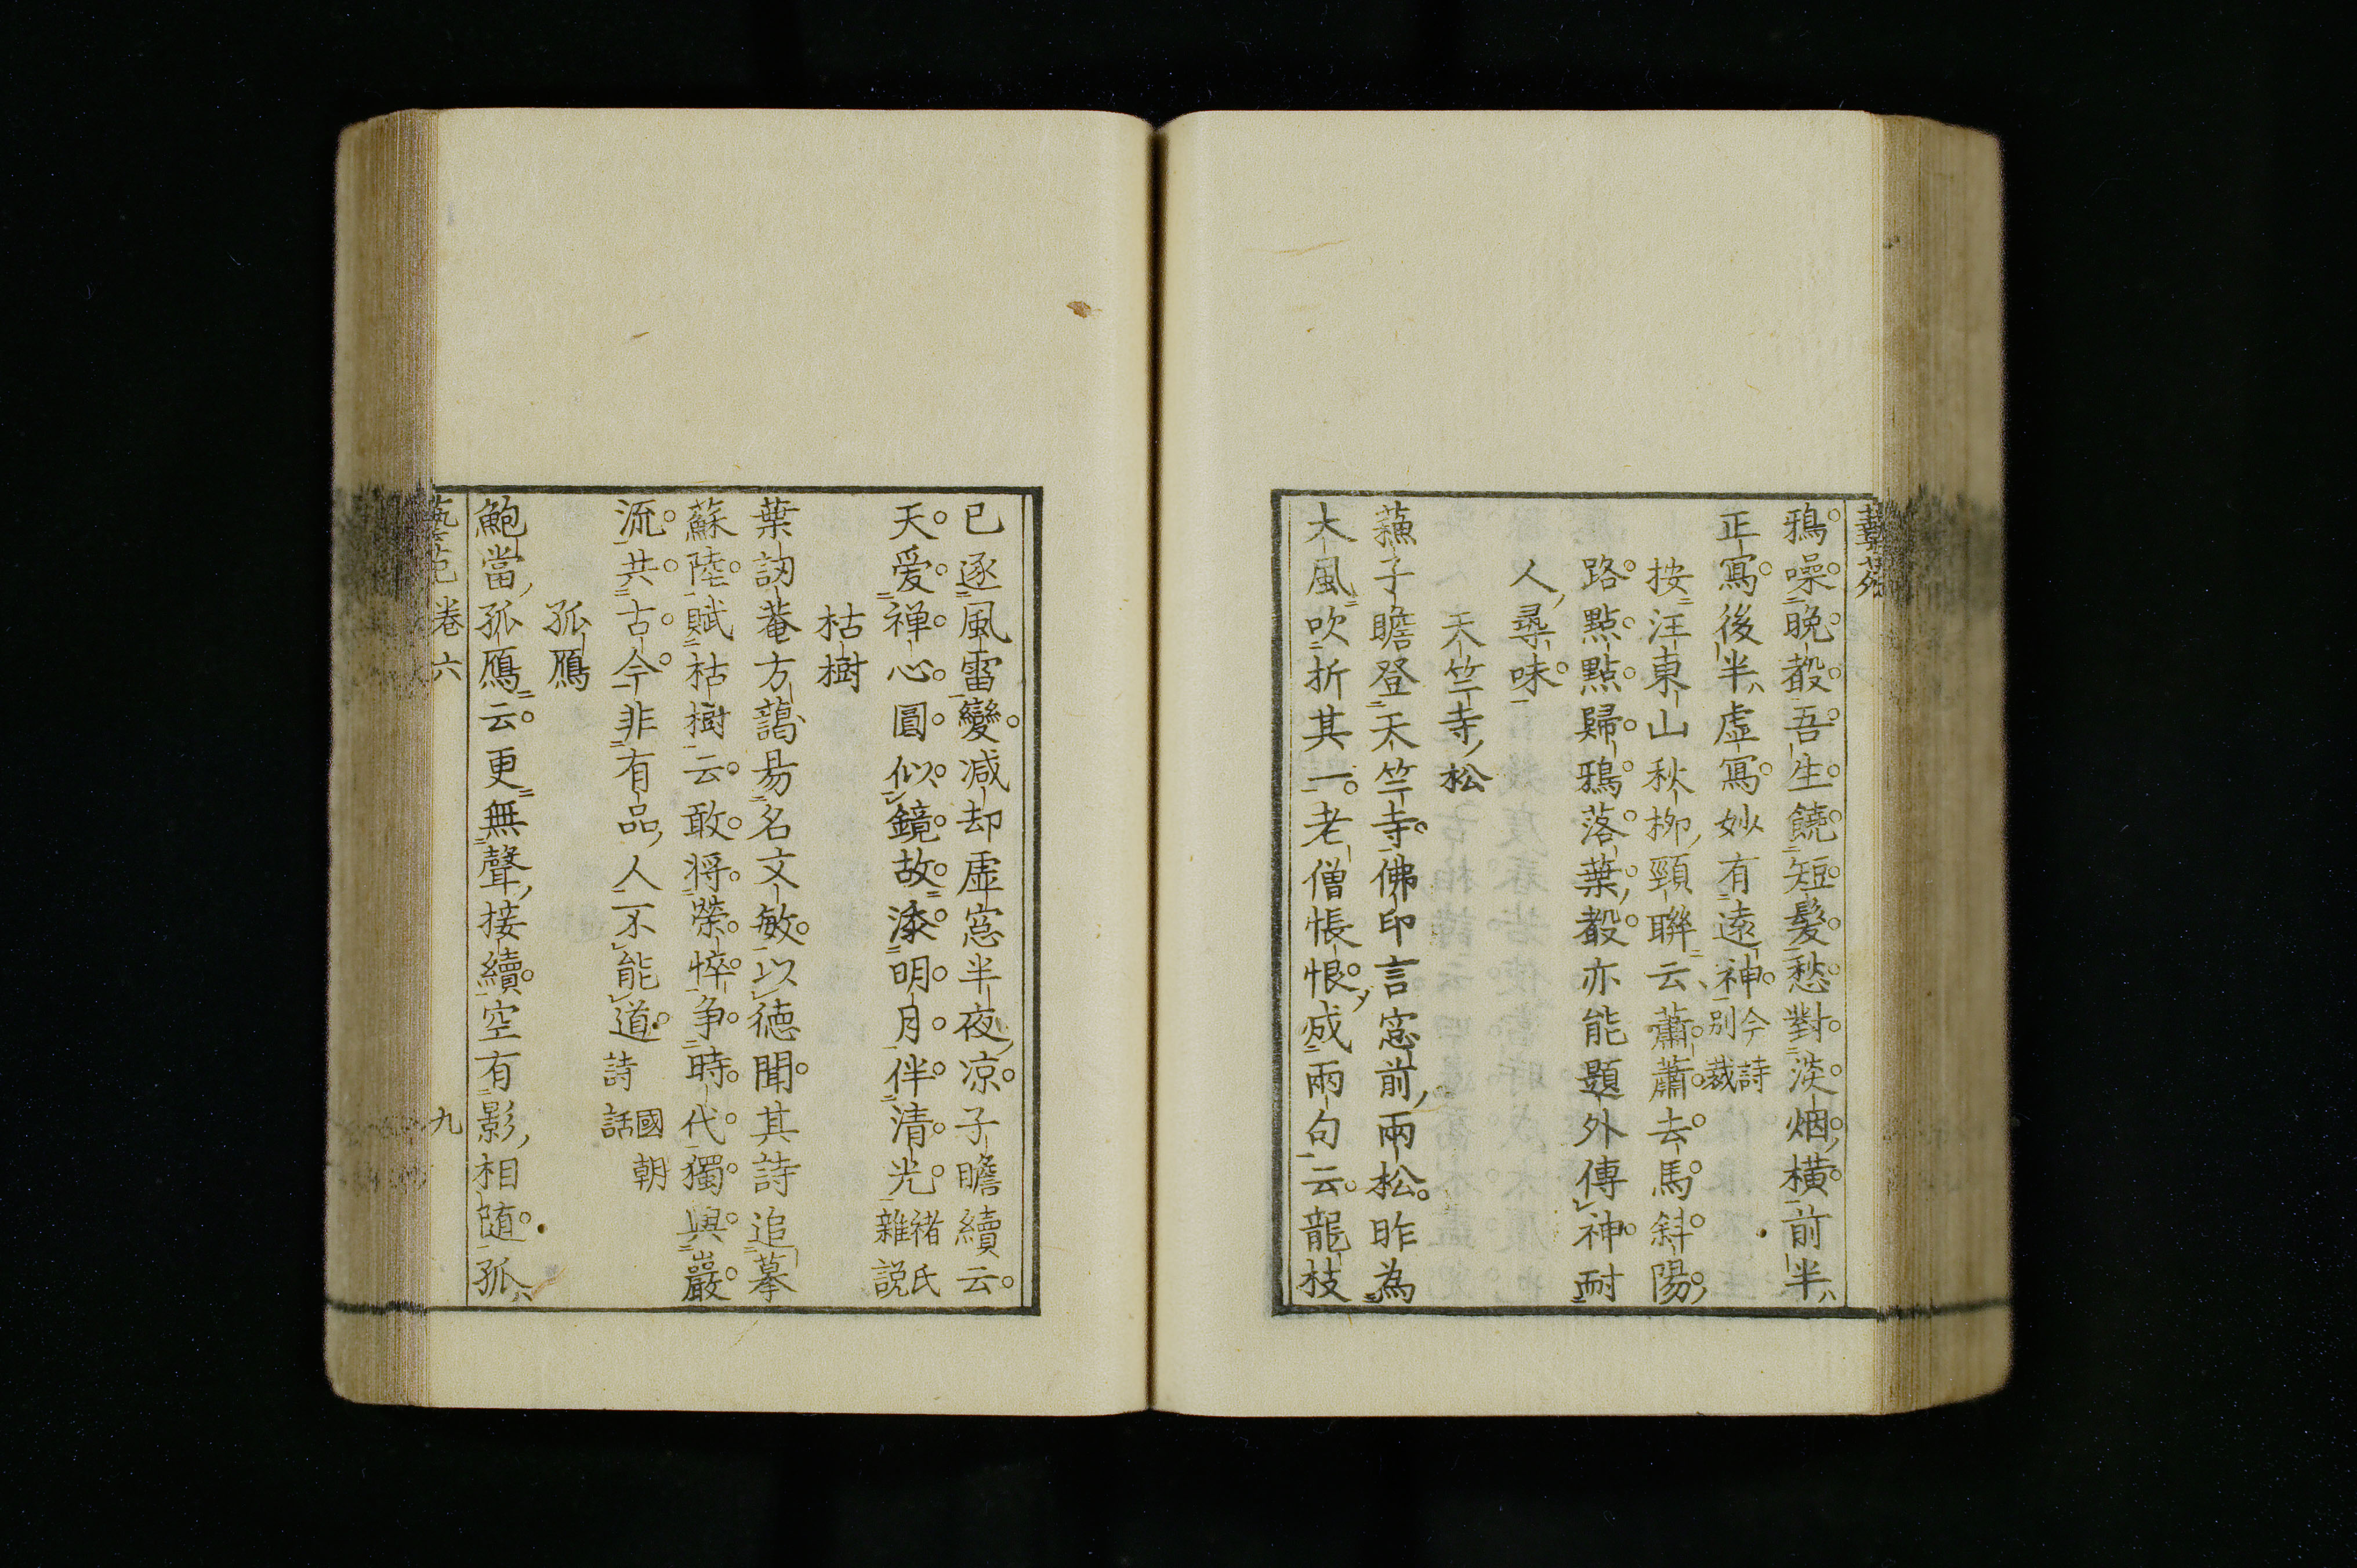 鴉噪晚殽吾生饒短髮愁對淡烟橫前半
正寫後半虛寫妙有遠神今詩
別裁
按汪東山秋栁頸聯云蕭蕭去馬斜陽
路點點歸鴉落葉殽亦能題外傳神耐
人尋味
天竺寺松
蘓子瞻登天竺寺佛印言窓前兩松昨為
大風吹折其一老僧悵恨成兩句云龍枝
已逐風雷變减却虛窓半夜凉子瞻續云
天爱禅心圓似鏡故添明月伴清光褚氏
雜説
枯樹
葉訒菴方藹昜名文敏以徳聞其詩追摹
蘇陸賦枯樹云敢将榮悴争時代獨與巖
流共古今非有品人不能道國朝
詩話
孤鴈
鮑當孤鴈云更無聲接續空有影相随孤
藝苑 卷六 九